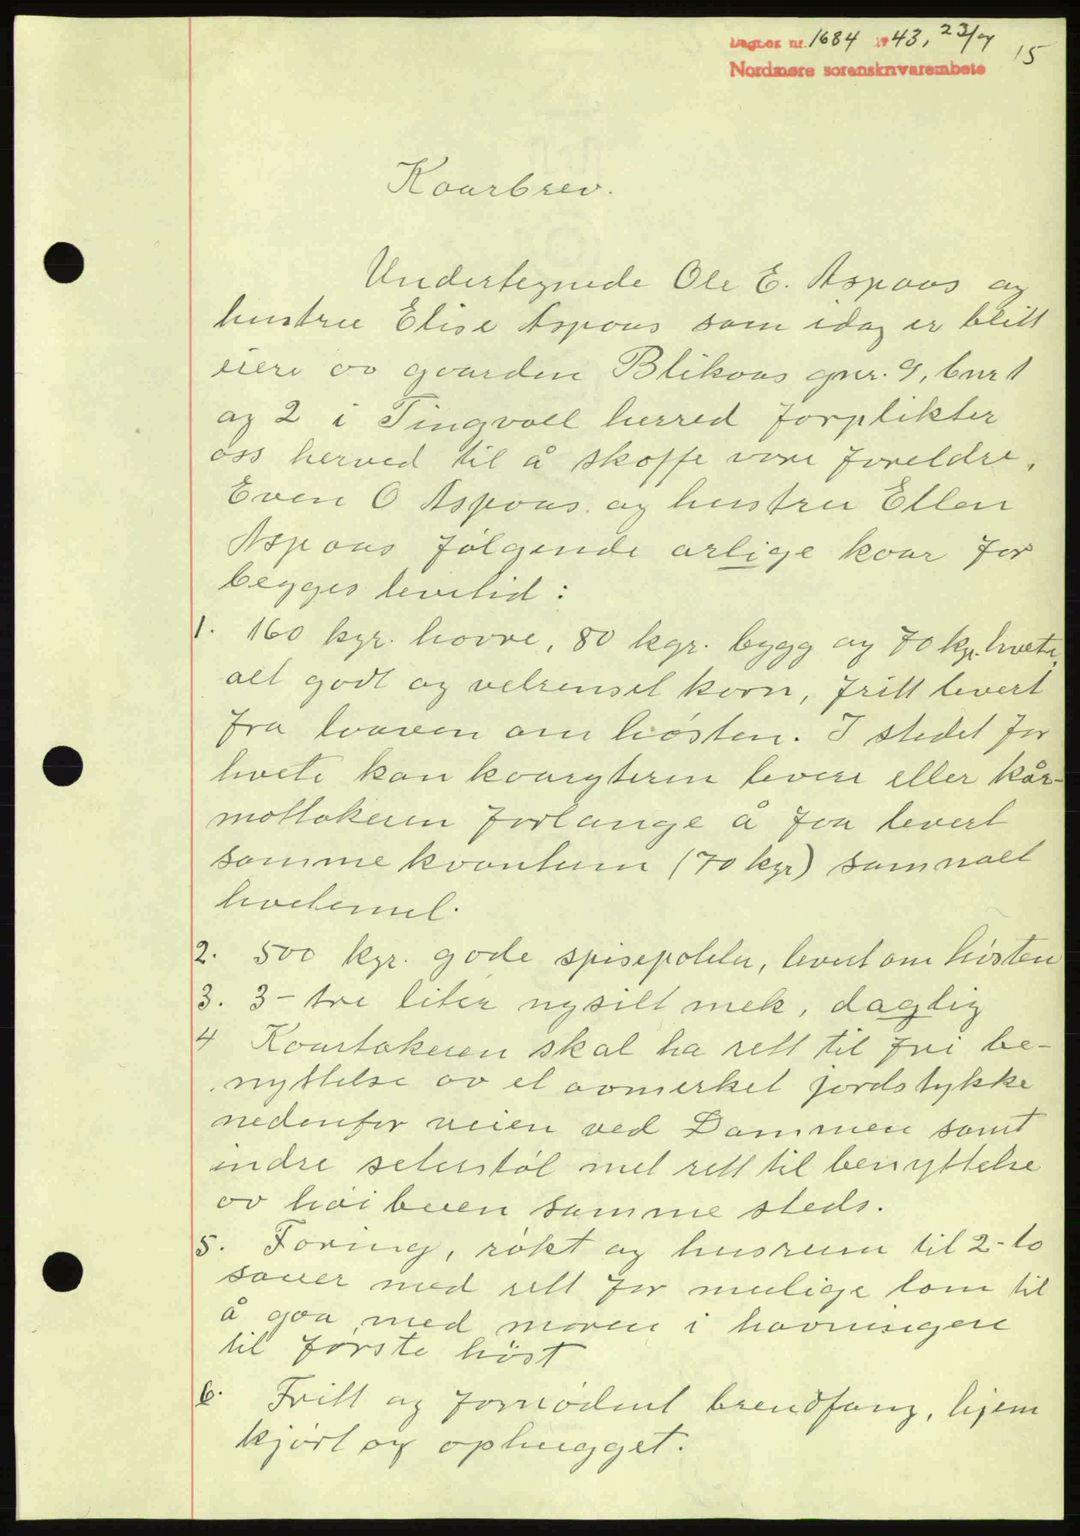 Dagbok nr. 1684 1943, 23/7
15
Nordmøre sorenskrivarembete
Kaarbrev.
Undertegnede Ole E. Aspaas og
hustru Elise Aspaas som idag er blitt
eiere av gaarden Blikaas gnr. 9, bnr 1
og 2 i Tingvoll herred forplikter
oss herved til å skaffe vore foreldre,
Even O Aspaas og hustru Ellen
Aspaas følgende årlige kaar for
begges levetid:
1. 160 kgr. havre, 80 kgr. bygg og 70 kg. hvete,
alt godt og velrenset korn, fritt levert
fra laaven om høsten. I stedet for
hvete kan kaaryteren levere eller kår-
mottakeren forlange å faa levert
samme kvantum (70 kgr) sammalt
hvetemel.
2. 500 kgr. gode spisepoteter, levert om høsten
3. 3 - tre liter nysilt melk, daglig
4 Kaartakeren skal ha rett til fri be-
nyttelse av et avmerket jordstykke
nedenfor veien ved Dammen samt
indre seterstøl med rett til benyttelse
av høibuen samme steds.
5. Foring, røkt og husrum til 2-to
sauer med rett for mulige lam til
å gaa med moren i havningen
til første høst
6. Fritt og fornødent brendfang, hjem
kjørt og ophugget.